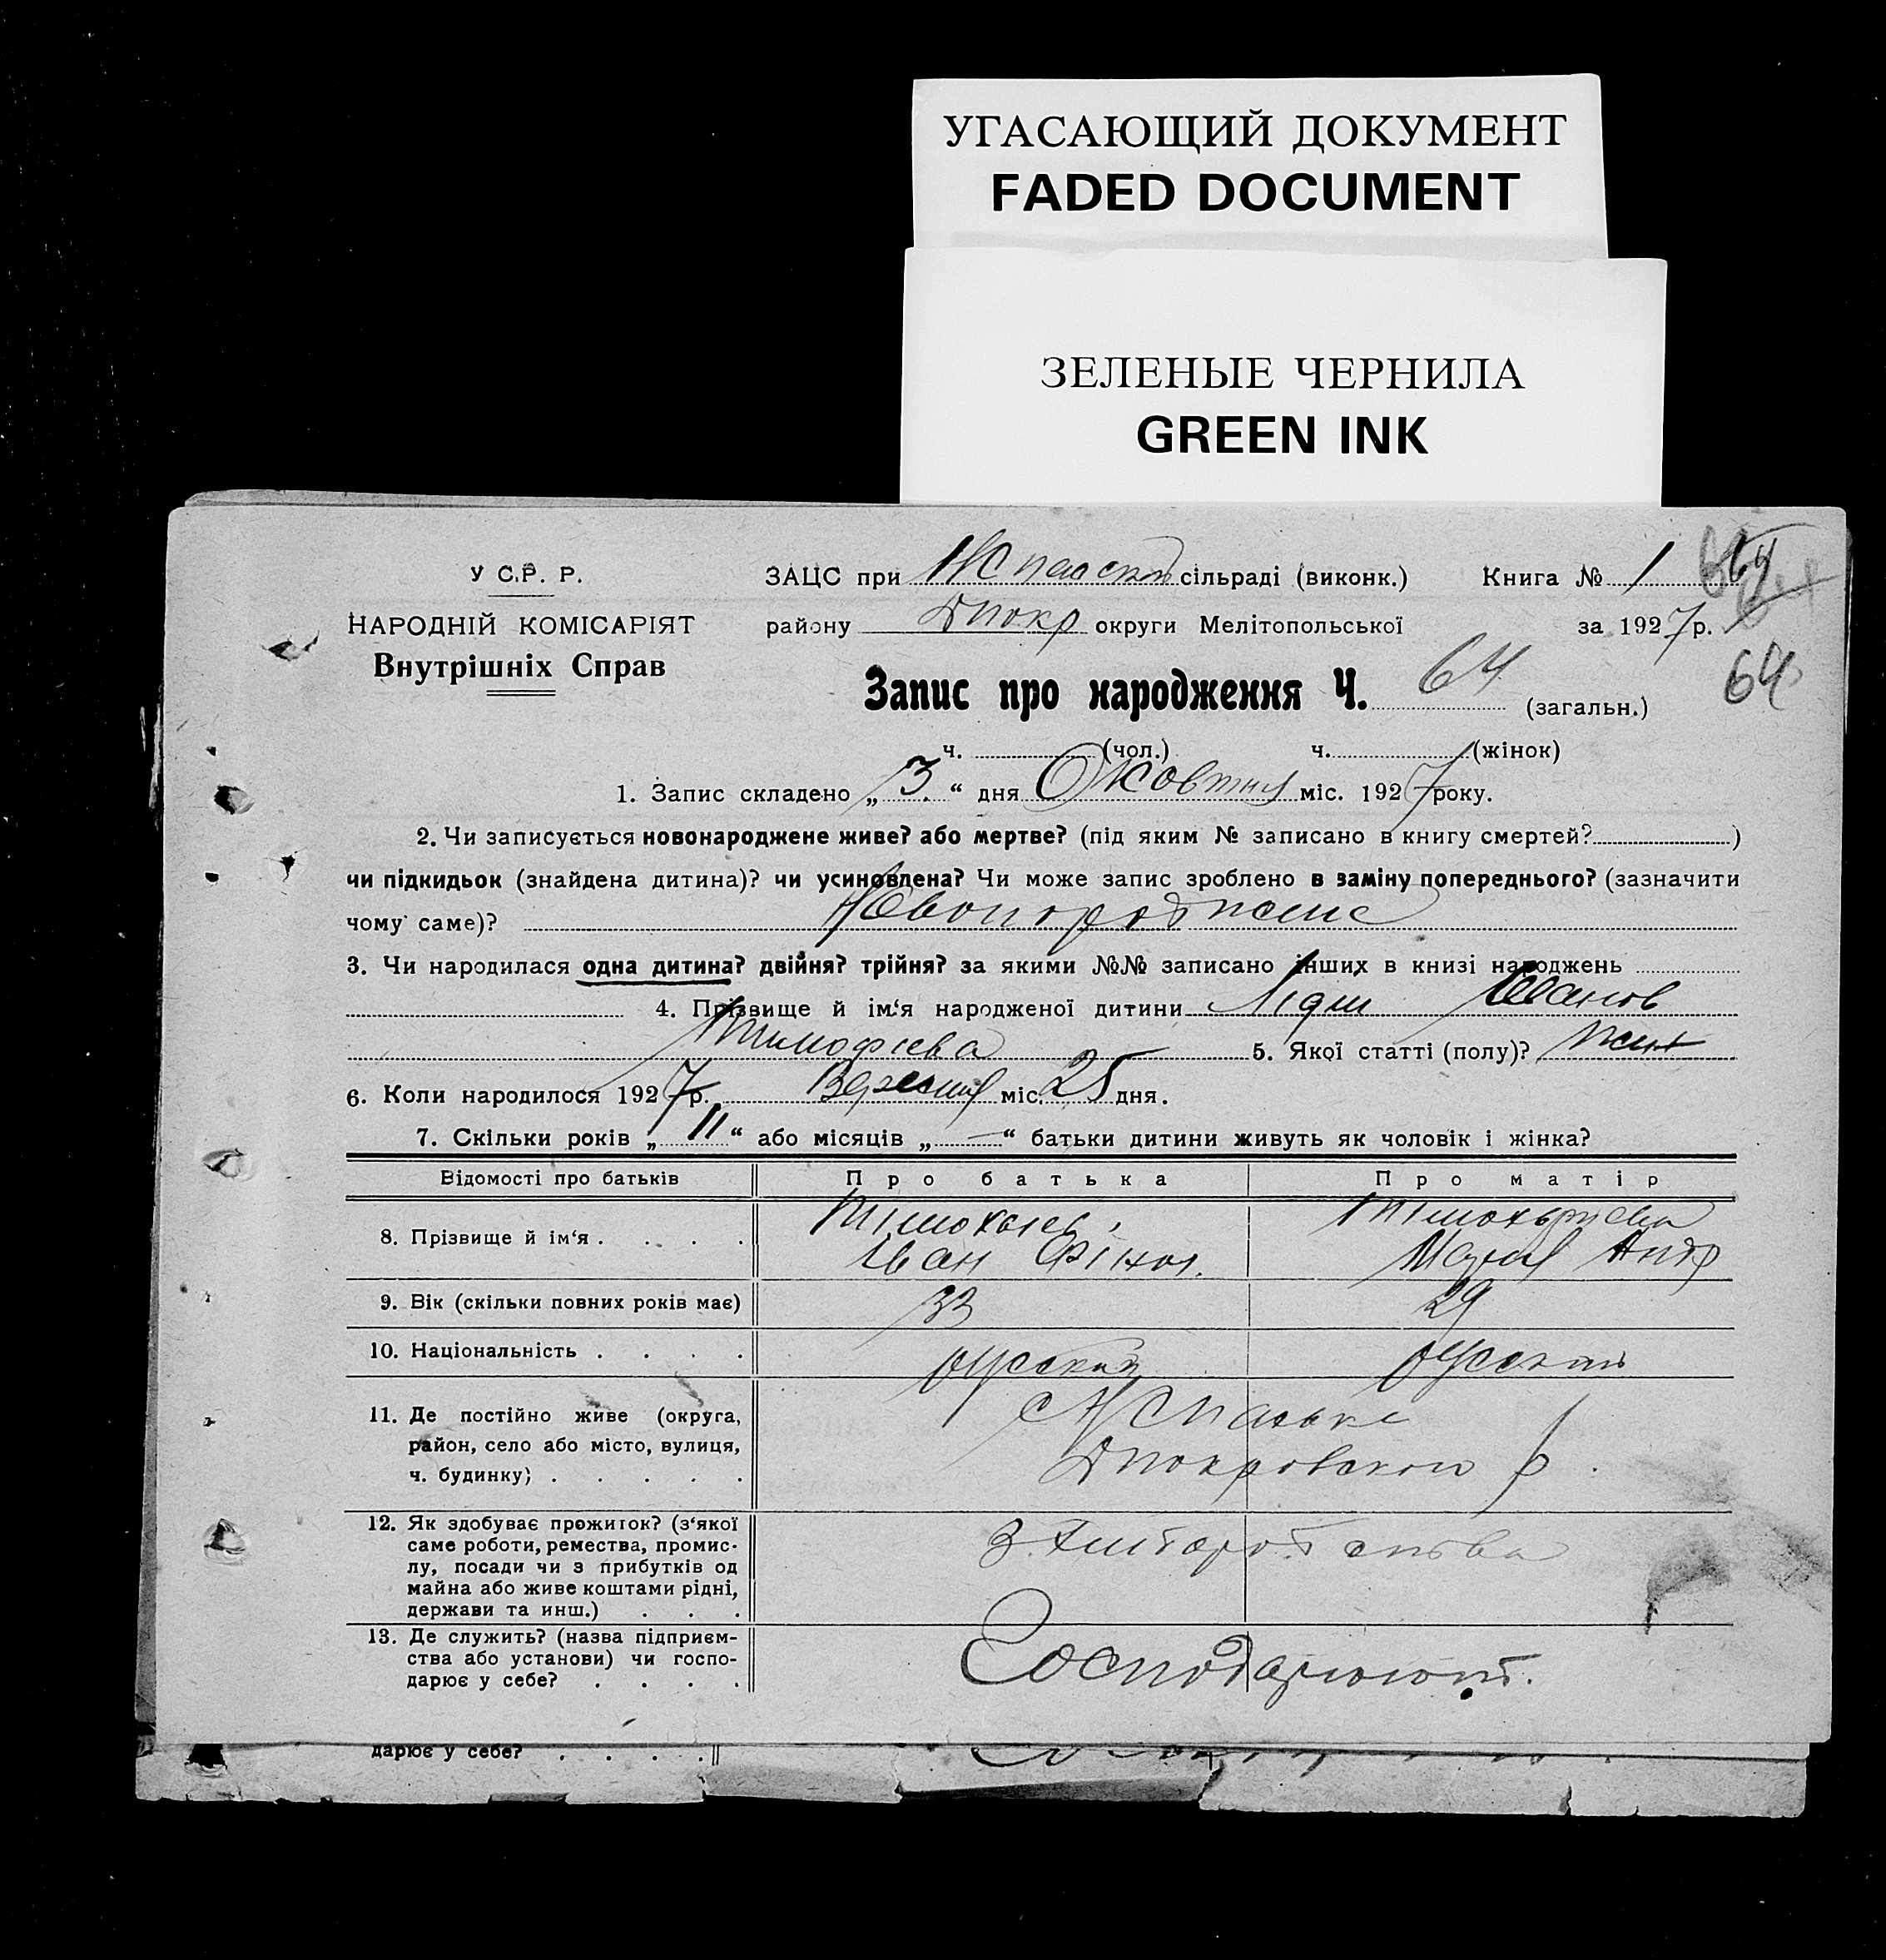 УГАСАЮЩИЙ ДОКУМЕНТ
FADED DOCUMENT
ЗЕЛЕНЫЕ ЧЕРНИЛА
GREEN INK
У С.Р. Р.
НАРОДНІЙ КОМІСАРІЯТ
Внутрішніх Справ
ЗАЦС при сільраді (виконк.) Книга № 1
району округи Мелітопольської за 1927 р.
64
Запис про народження Ч. 64 (загальн.)
ч. (чол.) ч. (жінок)
1. Запис складено „ 3 “ дня Жовтня міс. 1927 року.
2. Чи записується новонароджене живе? або мертве? (під яким № записано в книгу смертей? )
чи підкидьок (знайдена дитина)? чи усиновлена? Чи може запис зроблено в заміну попереднього? (зазначити
чому саме)?
3. Чи народилася одна дитина? двійня? трійня? за якими №№ записано інших в книзі народжень
4. Прізвище й ім‘я народженої дитини Лідия Иванов
Тимофієва 5. Якої статті (полу)? жен
6. Коли народилося 1927 р. Вересня міс. 25 дня.
7. Скільки років „ 11 “ або місяців „ — “ батьки дитини живуть як чоловік і жінка?
Відомості про батьків Про батька Про матір
8. Прізвище й ім‘я . . . . Іван Мария Андр
9. Вік (скільки повних років має) 33 29
10. Національність . . . . русский
11. Де постійно живе (округа,
район, село або місто, вулиця,
ч. будинку) . . . . .
12. Як здобуває прожиток? (з‘якої
саме роботи, ремества, промис-
лу, посади чи з прибутків од
майна або живе коштами рідні,
держави та инш.) . . .
13. Де служить? (назва підприєм-
ства або установи) чи госпо-
дарює у себе? . . . . Господарюют.
дарює у себе? . . . .